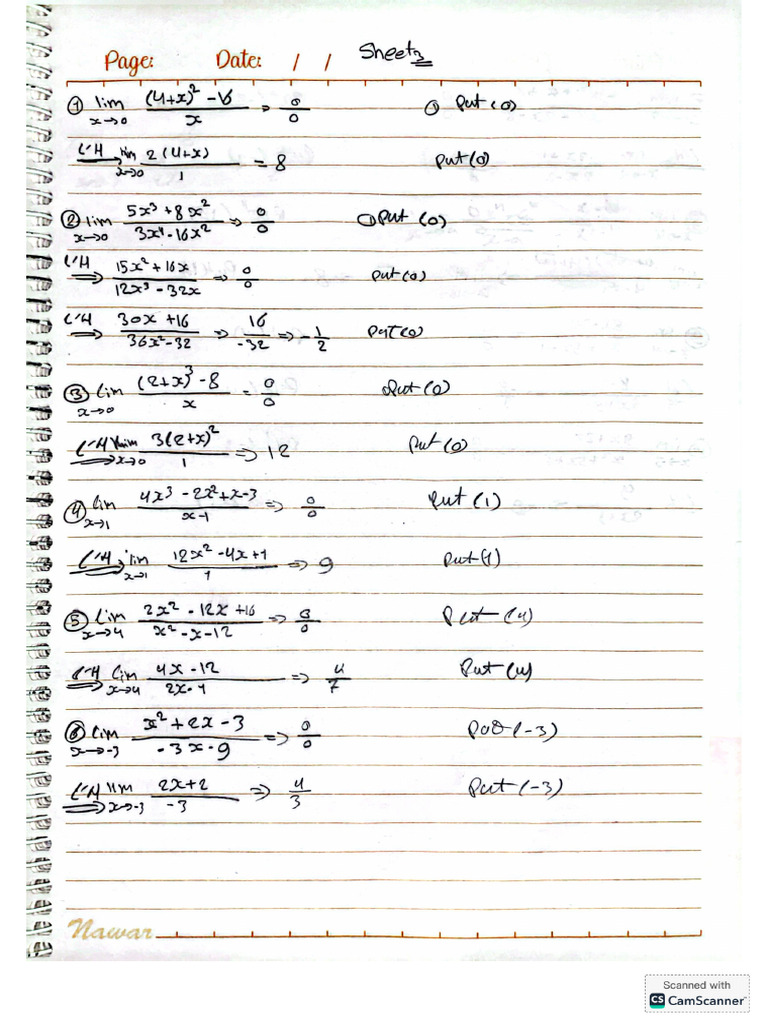 Page: Date: / / Sheet 3
① lim x→0 (4+x)² - 16 / x = 0/0 ① Put (0)
L'H ⟹ lim x→0 2(4+x) / 1 = 8 Put (0)
② lim x→0 5x³ + 8x² / 3x⁴ - 16x² ⇒ 0/0 ① Put (0)
L'H ⟹ 15x² + 16x / 12x³ - 32x ⇒ 0/0 Put (0)
L'H ⟹ 30x + 16 / 36x² - 32 ⇒ 16/-32 ⇒ -1/2 Put (0)
③ lim x→0 (2+x)³ - 8 / x = 0/0 Put (0)
L'H ⟹ lim x→0 3(2+x)² / 1 ⇒ 12 Put (0)
④ lim x→1 4x³ - 2x² + x - 3 / x - 1 ⇒ 0/0 Put (1)
L'H ⟹ lim x→1 12x² - 4x + 1 / 1 ⇒ 9 Put (1)
⑤ lim x→4 2x² - 12x + 16 / x² - x - 12 ⇒ 0/0 Put (4)
L'H ⟹ lim x→4 4x - 12 / 2x - 1 ⇒ 4/7 Put (4)
⑥ lim x→-3 x² + 2x - 3 / -3x - 9 ⇒ 0/0 Put (-3)
L'H ⟹ lim x→-3 2x + 2 / -3 ⇒ 4/3 Put (-3)
Nawar
Scanned with
CS CamScanner